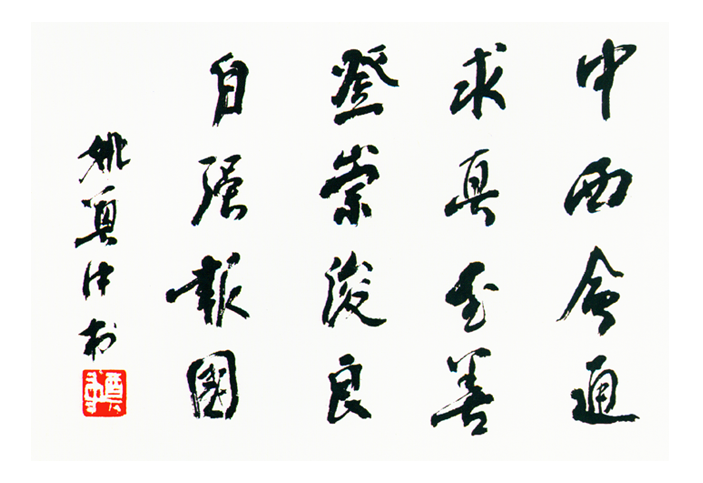 中西会通
求真至善
登崇俊良
自强報國
姚奠中书